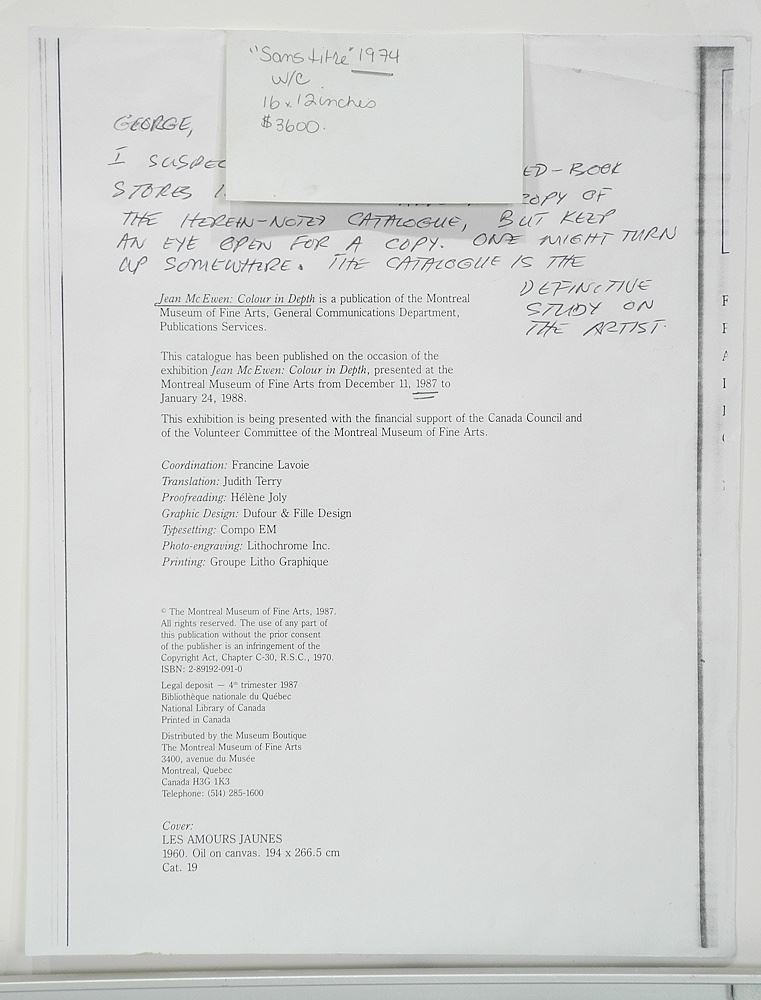 "Sans titre" 1974
W/C
16 x 12 inches
$3600.
GEORGE,
I
ED-BOOK
STORES COPY OF
THE HEREIN-NOTED CATALOGUE, BUT KEEP
AN EYE OPEN FOR A COPY. ONE MIGHT TURN
UP SOMEWHERE. THE CATALOGUE IS THE
DEFINITIVE
STUDY ON
THE ARTIST.
Jean McEwen: Colour in Depth is a publication of the Montreal
Museum of Fine Arts, General Communications Department,
Publications Services.
This catalogue has been published on the occasion of the
exhibition Jean McEwen: Colour in Depth, presented at the
Montreal Museum of Fine Arts from December 11, 1987 to
January 24, 1988.
This exhibition is being presented with the financial support of the Canada Council and
of the Volunteer Committee of the Montreal Museum of Fine Arts.
Coordination: Francine Lavoie
Translation: Judith Terry
Proofreading: Hélène Joly
Graphic Design: Dufour & Fille Design
Typesetting: Compo EM
Photo-engraving: Lithochrome Inc.
Printing: Groupe Litho Graphique
© The Montreal Museum of Fine Arts, 1987.
All rights reserved. The use of any part of
this publication without the prior consent
of the publisher is an infringement of the
Copyright Act, Chapter C-30, R.S.C., 1970.
ISBN: 2-89192-091-0
Legal deposit — 4th trimester 1987
Bibliothèque nationale du Québec
National Library of Canada
Printed in Canada
Distributed by the Museum Boutique
The Montreal Museum of Fine Arts
3400, avenue du Musée
Montreal, Quebec
Canada H3G 1K3
Telephone: (514) 285-1600
Cover:
LES AMOURS JAUNES
1960. Oil on canvas. 194 x 266.5 cm
Cat. 19